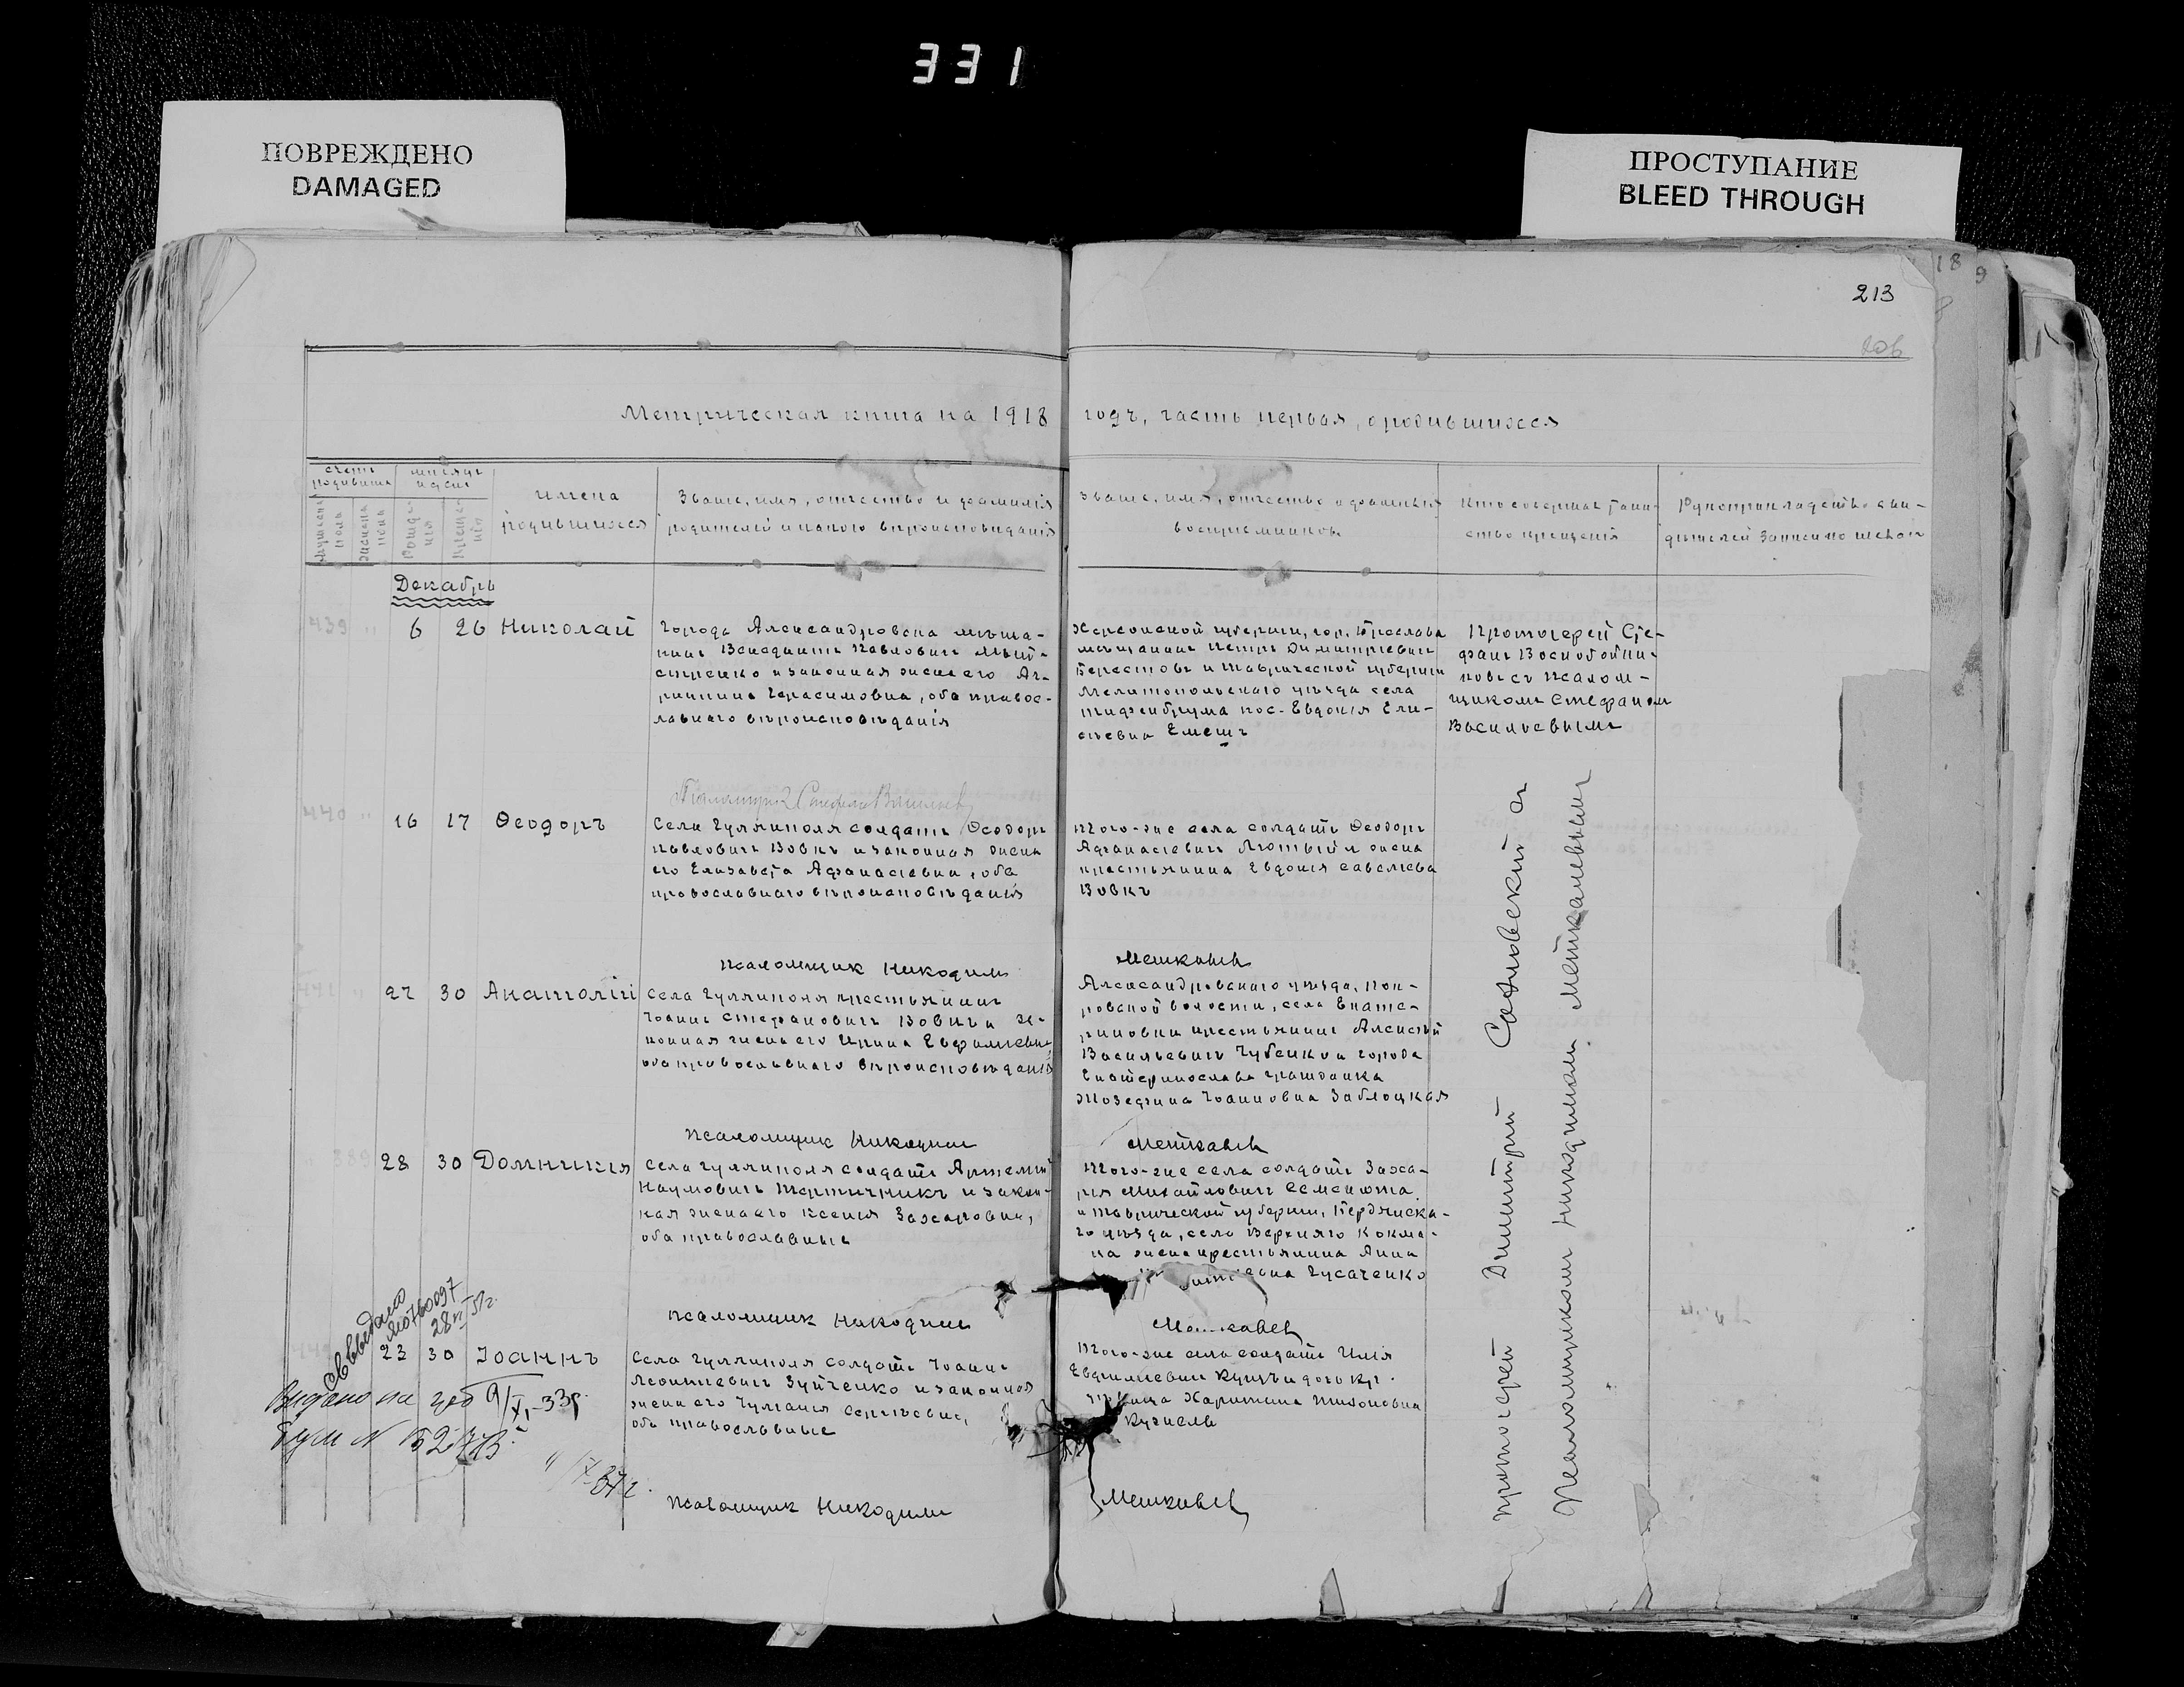 331
ПОВРЕЖДЕНО
DAMAGED
ПРОСТУПАНИЕ
BLEED THROUGH
18 9
213
206
Метрическая книга на 1918 годъ, часть первая, о родившихся
счетъ родившихся
мужеска пола
женска пола
мѣсяцъ и день
рожденія
крещенія
имена
родившихся
Званіе, имя, отчество и фамилія
родителей и какого вѣроисповѣданія
Званіе, имя, отчество и фамилія
воспріемниковъ
Кто совершалъ таин-
ство крещенія
Рукоприкладство сви-
дѣтелей записи по желан
Декабрь
439 " 6 26 Николай
города Александровска мѣща-
нинъ Венедиктъ Павловичъ
и законная жена его Аг-
рипина Герасимовна, оба правос-
лавнаго вѣроисповѣданія
Херсонской губерніи, гор.
мѣщанинъ Петръ Димитріевичъ
Берестовъ и Таврической губерніи
Мелитопольскаго уѣзда села
пос. Евдокія Ели-
сѣевна Емецъ
Протоіерей Сте-
фанъ Воскобойни-
ковъ съ псалом-
щикомъ Стефаном
Васильевымъ
Псаломщикъ Стефанъ Васильевъ
440 " 16 17 Ѳеодоръ
Села Гуляйполя солдатъ Ѳеодоръ
Павловичъ Вовкъ и законная жена
его Елизавета Афанасіевна, оба
православнаго вѣроисповѣданія
того-же села солдатъ Ѳеодоръ
Афанасіевичъ Лютый и жена
крестьянина Евдокія Савелiева
Вовкъ
Псаломщик Никодим Мешкавец
441 " 27 30 Анатолій
Села Гуляйполя крестьянинъ
Іоаннъ Стефановичъ Вовкъ и за-
конная жена его Ирина Евфиміевна
оба православнаго вѣроисповѣданія
Александровскаго уѣзда, Пок-
ровской волости, села Екате-
риновки крестьянинъ Алексѣй
Васильевичъ Чубенко и города
Екатеринослава гражданка
Жозефина Іоанновна Заблоцкая
Псаломщик Никодим Мешкавец
" 389 28 30 Домникія
Села Гуляйполя солдатъ Артемій
Наумовичъ Тертичникъ и закон-
ная жена его Ксенія Захаровна,
оба православные
того-же села солдатъ Заха-
рія Михайловичъ Семенюта
и Таврической губерніи, Бердянска-
го уѣзда, села Верхняго Токма-
ка жена крестьянина Анна
Гусаченко
Псаломщик Никодим Мешкавец
св выдано
МЮ 760097
28
23 30 Іоаннъ
Села Гуляйполя солдатъ Іоаннъ
Леонтіевичъ Зуйченко и законная
жена его Іуліанія Сергѣевна,
оба православные
того-же села солдатъ Илія
Евфиміевичъ
Харитина Тихоновна
Выдано на
9/XI-33г.
Псаломщик Никодим Мешкавец
Протоіерей Димитрій Сахновскій съ
Псаломщикомъ Никодимомъ Мешкавевымъ